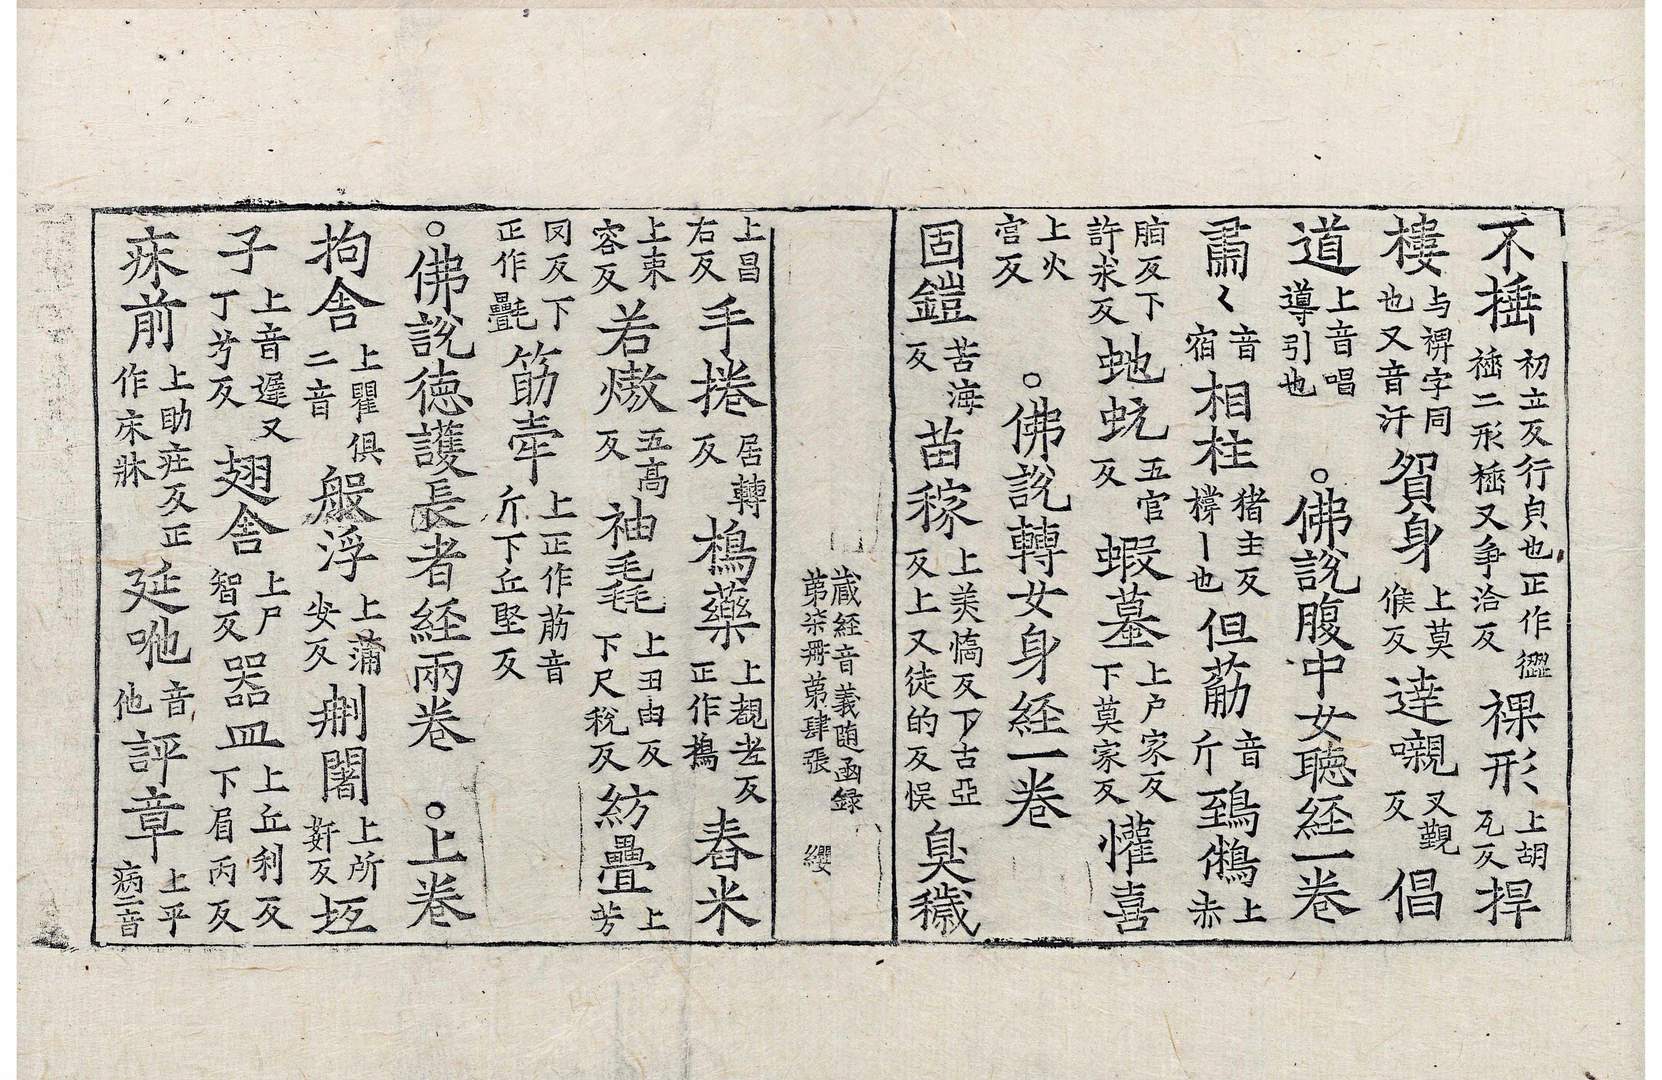 不㮑初立反行皃也正作澀𣻑二形㮑又爭洽反裸形上胡瓦反捍
樓与褌字同也又音汗貿身上莫候反達嚫叉覲反倡
道上音唱導引也。佛說腹中女聽経一卷
肅〻音宿相柱猪主反撑丨也但荕音斤鵄鵂上赤
脂反下許求反虵蚖五官反蝦蟇上户家反下莫家反懽喜
上火官反。佛說轉女身経一卷
固鎧苦海反苗稼上美憍反下古亞反上又徒的反悞臭穢
藏経音義随函録
第柒冊第肆張 纓
上昌右反手捲居轉反檮藥上覩老反正作擣舂米
上束容反若熬五髙反袖毳上王由反下尺稅反紡疊上芳
冈反下正作㲲筋牽上正作荕音斤下丘堅反
。佛說徳護長者経兩卷 。上卷
拘舍上瞿俱二音般浮上蒲安反刪闍上所姧反坘
子上音遲又丁兮反翅舍上尸智反器皿上丘利反下眉丙反
床前上助庄反正作床牀延吔音他評章上平病二音